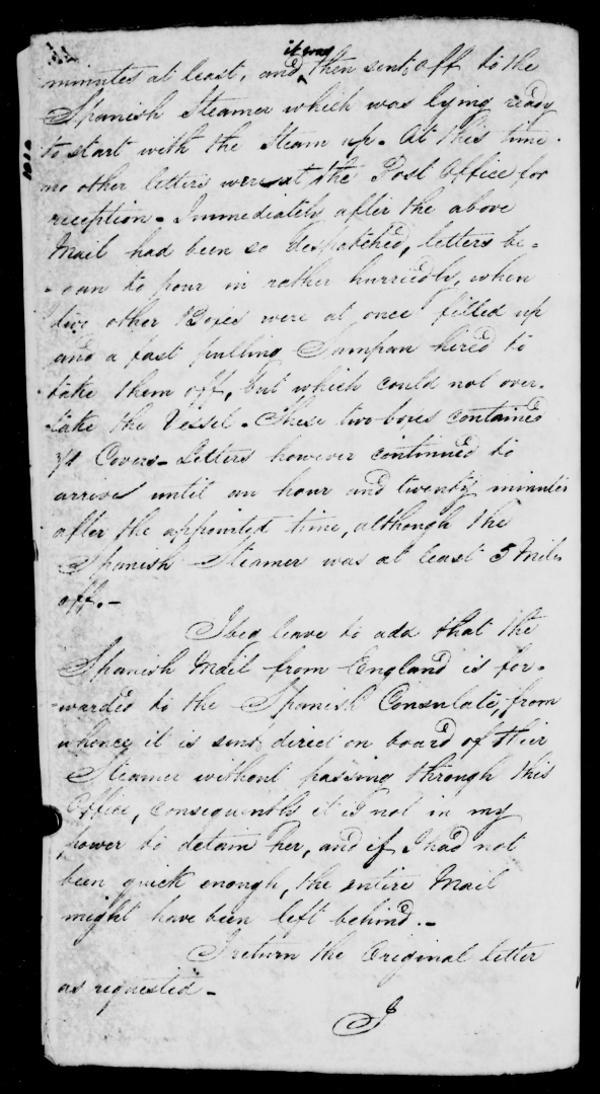 it was
minutes at least, and then sent off to the
Spanish Steamer which was lying ready
to start with the Steam up. At this time
no other letters were at the Post Office for
reception. Immediately after the above
Mail had been so despatched, letters be-
-gan to pour in rather hurriedly, when
two other Boxes were at once filled up
and a fast pulling Sampan hired to
take them off, but which could not over-
-take the Vessel. These two boxes contained
Covers. Letters however continued to
arrive until an hour and twenty minutes
after the appointed time, although the
Spanish Steamer was at least 5 Miles
off.-
I beg leave to add that the
Spanish Mail from England is for-
-warded to the Spanish Consulate, from
whence it is sent direct on board of their
Steamer without passing through this
Office, consequently it is not in my
power to detain her, and if I had not
been quick enough, the entire Mail
might have been left behind.-
I return the Original letter
as requested-
I